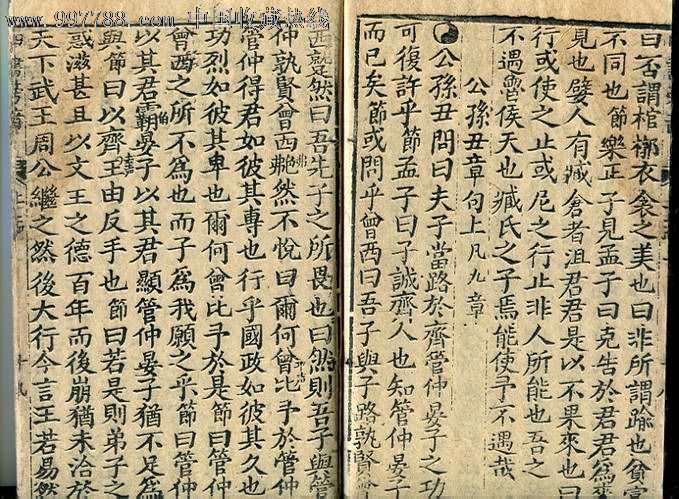 www.997788.com 中国收藏热线
曰否謂棺槨衣衾之美也曰非所謂踰也貧
不同也節樂正子見孟子曰克告於君君爲
見也嬖人有臧倉者沮君君是以不果來也曰
行或使之止或尼之行止非人所能也吾之
不遇魯侯天也臧氏之子焉能使予不遇哉
公孫丑章句上凡九章
公孫丑問曰夫子當路於齊管仲晏子之功
可復許乎節孟子曰子誠齊人也知管仲晏子
而已矣節或問乎曾西曰吾子與子路孰賢
西蹵然曰吾先子之所畏也曰然則吾子與管
仲孰賢曾西艴然不悅曰爾何曾比予於管仲
管仲得君如彼其專也行乎國政如彼其久也
功烈如彼其卑也爾何曾比予於是節曰管仲
曾西之所不爲也而子爲我願之乎節曰管仲
以其君霸晏子以其君顯管仲晏子猶不足爲
與節曰以齊王由反手也節曰若是則弟子之
惑滋甚且以文王之德百年而後崩猶未洽於
天下武王周公繼之然後大行今言王若易然